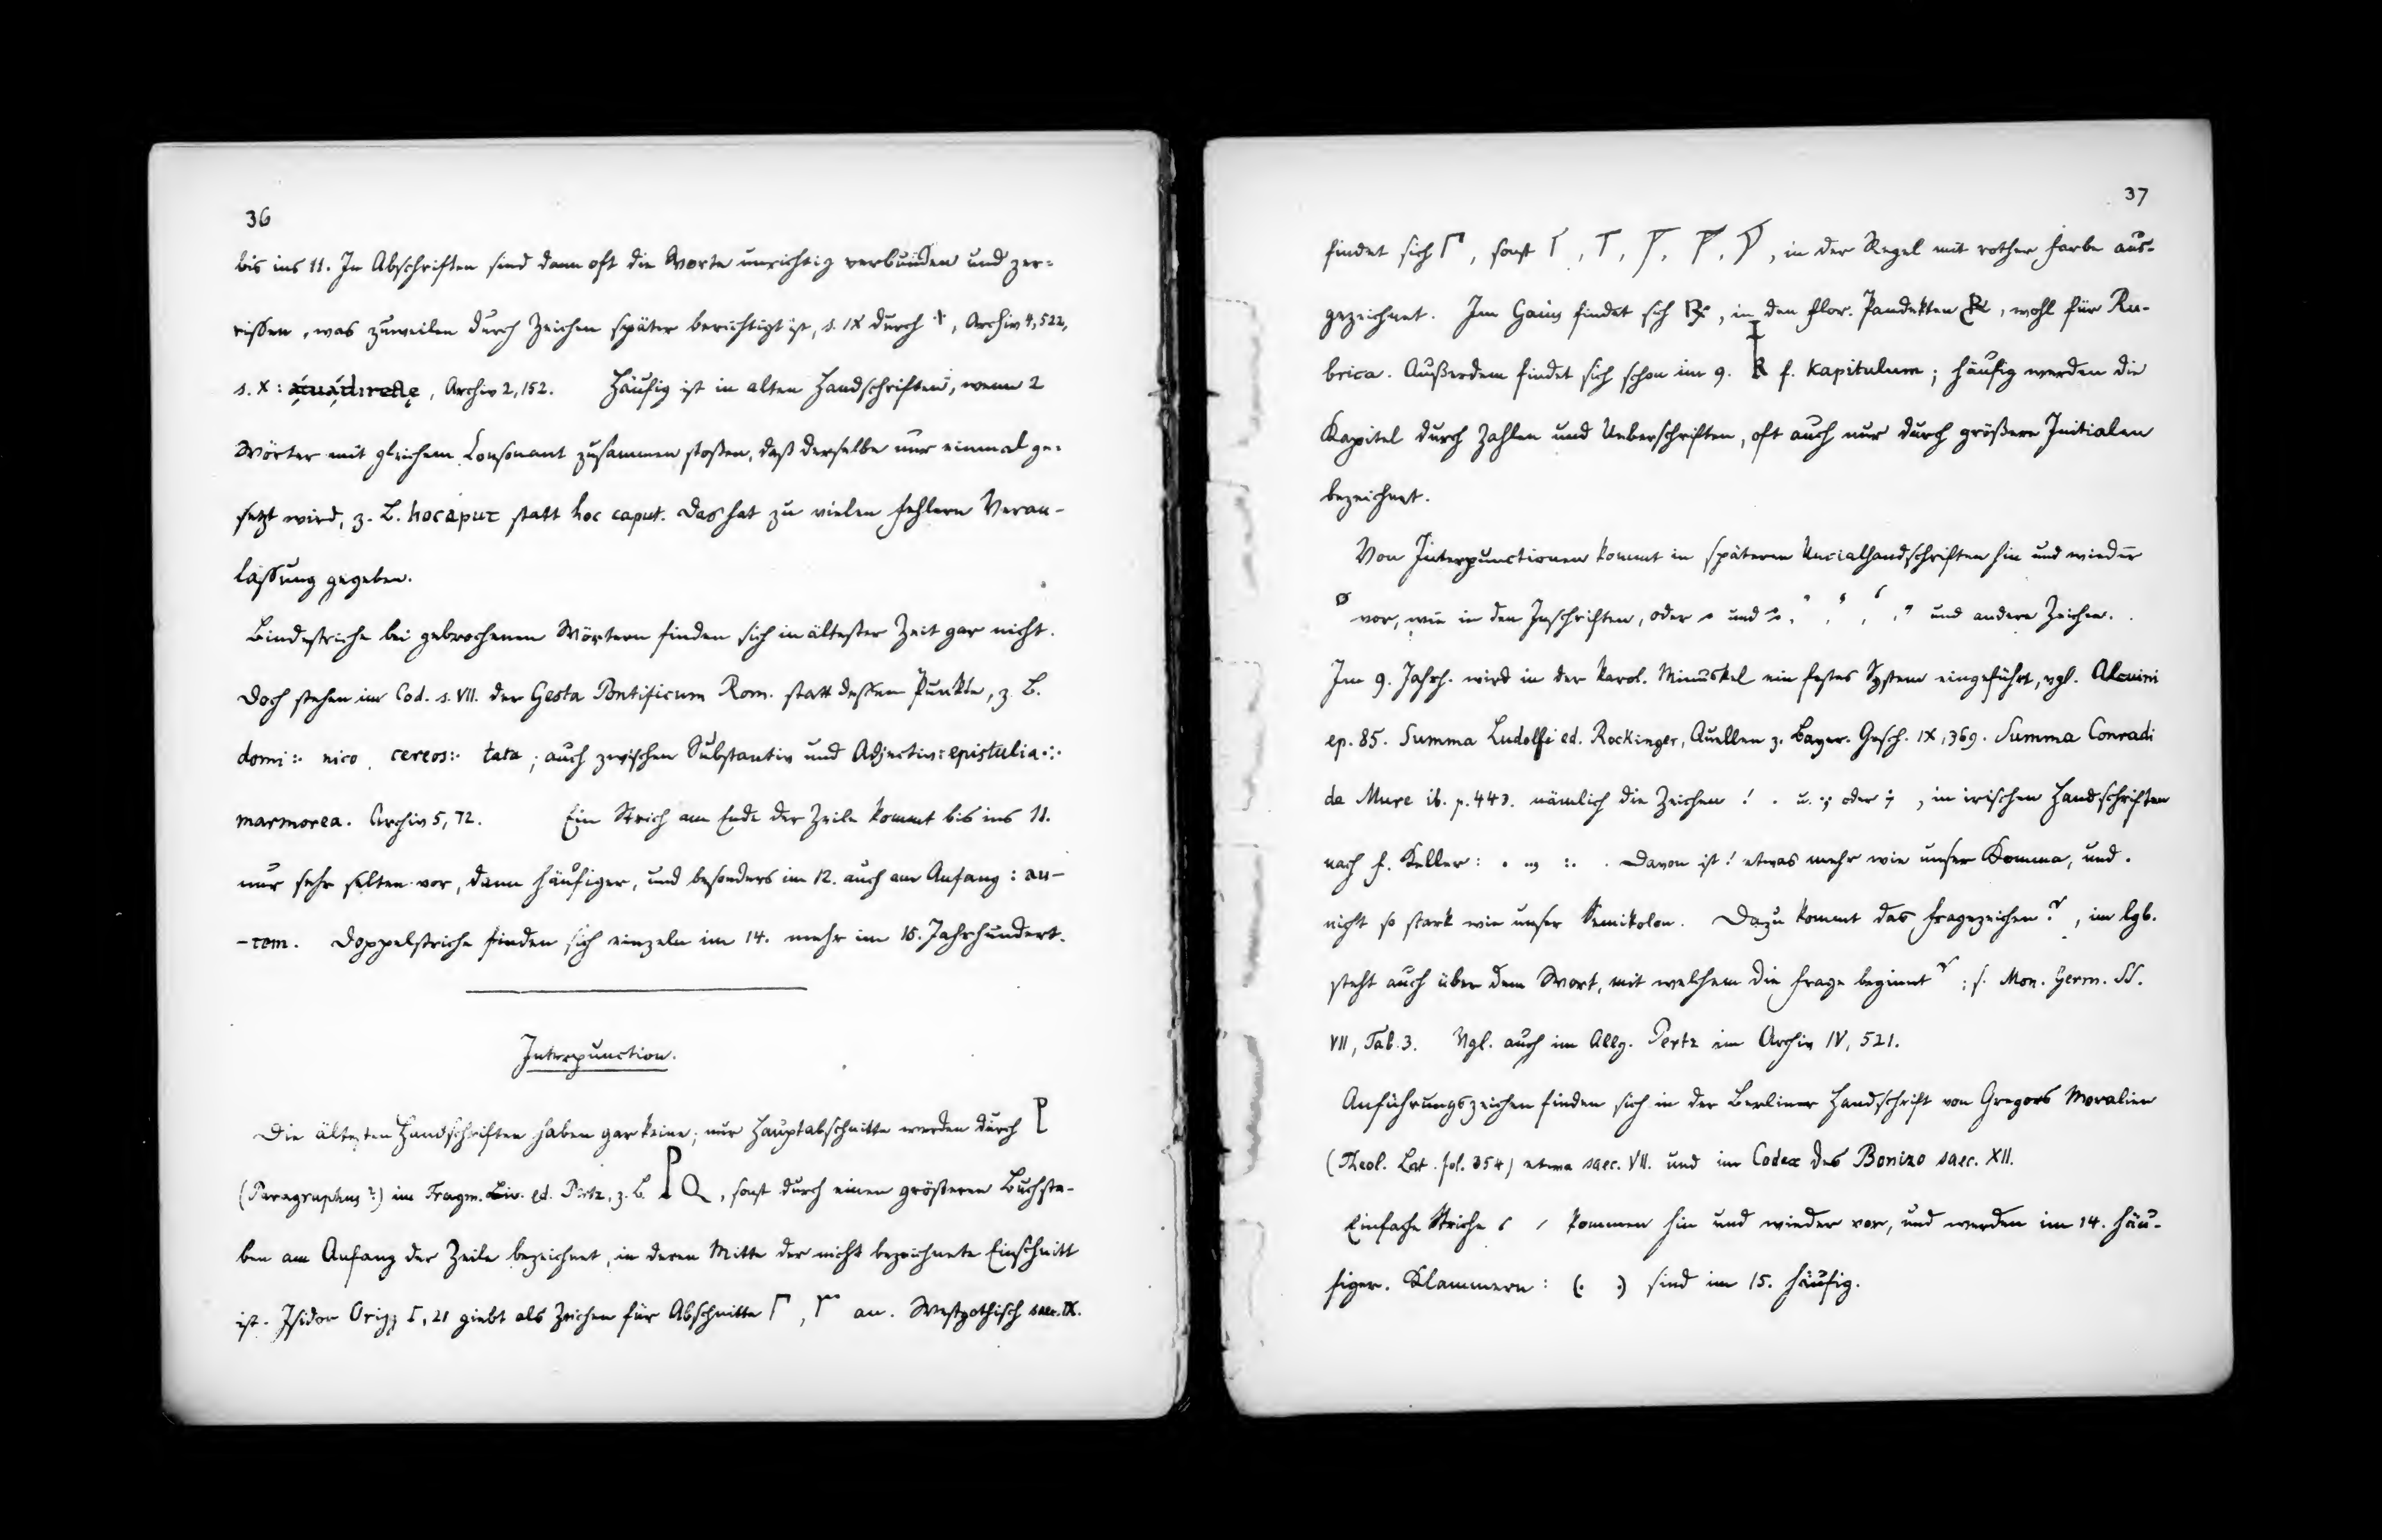 36
bis ins 11. In Abschriften sind dann oft die Worte unrichtig verbunden und zer-
rissen, was zuweilen durch Zeichen später berichtigt ist, s. IX durch, Archiv 4, 522,
s. X: , Archiv 2, 152. Häufig ist in alten Handschriften, wenn 2
Wörter mit gleichem Consonant zusammen stoßen, daß derselbe nur einmal ge-
setzt wird, z. B. hocaput statt hoc caput. Das hat zu vielen Fehlern Veran-
lassung gegeben.
Bindestriche bei gebrochenen Wörtern finden sich in ältester Zeit gar nicht.
Doch stehen im Cod. s. VII. der Gesta Pontificum Rom. statt dessen Punkte, z. B.
domi :· nico cereos :· tata; auch zwischen Substantiv und Adjectiv: epistulia ·:·
marmorea. Archiv 5, 72. Ein Strich am Ende der Zeile kommt bis ins 11.
nur sehr selten vor, dann häufiger, und besonders im 12. auch am Anfang: au-
-tem. Doppelstriche finden sich einzeln im 14. mehr im 15. Jahrhundert.
Interpunction.
Die ältesten Handschriften haben gar keine; nur Hauptabschnitte werden durch P
(Paragraphus?) im Fragm. Liv. ed. Pertz, z. B. P Q, sonst durch einen größeren Buchsta-
ben am Anfang der Zeile bezeichnet, in deren Mitte der nicht bezeichnete Einschnitt
ist. Isidor Origg I, 21 giebt als Zeichen für Abschnitte Γ, an. Westgothisch saec. IX.
37
findet sich Γ, sonst Γ, T, in der Regel mit rother Farbe aus-
gezeichnet. Im Gaius findet sich, in den flor. Pandekten, wohl für Ru-
brica. Außerdem findet sich schon im 9. K f. Kapitulum; häufig werden die
Kapitel durch Zahlen und Ueberschriften, oft auch nur durch größere Initialen
bezeichnet.
Von Interpunctionen kommt in späteren Uncialhandschriften hin und wieder
vor, wie in den Inschriften, oder und und andere Zeichen.
Im 9. Jahrh. wird in der karol. Minuskel ein festes System eingeführt, vgl. Alcuini
ep. 85. Summa Ludolfi ed. Rockinger, Quellen z. Bayer. Gesch. IX, 369. Summa Conradi
de Mure ib. p. 443. nämlich die Zeichen ! . u. ·; oder ;, in irischen Handschriften
nach F. Keller: . .., :. . Davon ist ! etwas mehr wie unser Komma, und .
nicht so stark wie unser Semikolon. Dazu kommt das Fragezeichen ?, im lgb.
steht auch über dem Wort, mit welchem die Frage beginnt; s. Mon. Germ. SS.
VII, Tab. 3. Vgl. auch im Allg. Pertz im Archiv IV, 521.
Anführungszeichen finden sich in der Berliner Handschrift von Gregors Moralien
(Theol. Lat. fol. 354) etwa saec. VII. und im Codex des Bonizo saec. XII.
Einfache Striche / kommen hin und wieder vor, und werden im 14. häu-
figer. Klammern: (. .) sind im 15. häufig.